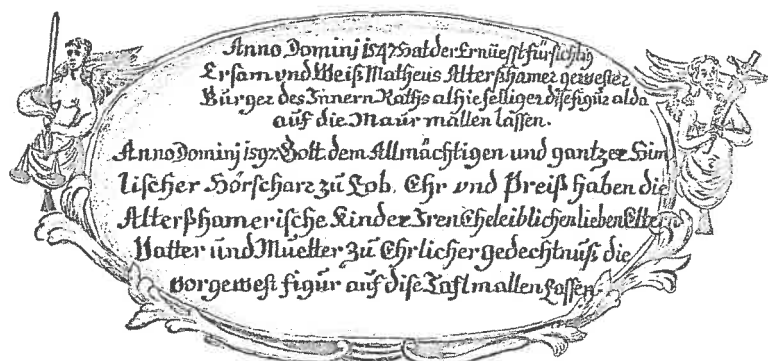 Anno Dominj 1547 Hat der Ernüesst fürsichtig
Ersam vnd Weiß Matheus Alterßhamer gewester
Burger des Innern Raths alhie selliger dise figur alda
auf die Maur mallen lassen.
Anno Dominj 1597 Gott dem Allmächtigen und gantzer Him
lischer Hörscharr zu Lob, Ehr vnd Preiß haben die
Alterßhamerische Kinder Iren Eheleiblichen lieben Eltern
Vatter und Muetter zu Ehrlicher gedechtnuß die
vorgewest figur auf dise Tafl mallen Lossen.